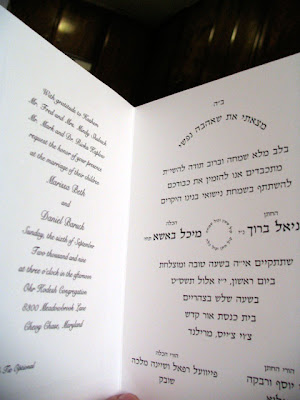 With gratitude to Hashem
Mr. Fred and Mrs.
Mr. Mark and Dr.
request the honor of your presence
at the marriage of their children
Marissa Beth
and
Daniel Baruch
Sunday, the sixth of September
Two thousand and nine
at three o'clock in the afternoon
Ohr Kodesh Congregation
8300 Meadowbrook Lane
Chevy Chase, Maryland
Tie Optional
ב״ה
מצאתי את שאהבה נפשי
בלב מלא שמחה וברוב תודה להשי״ת
מתכבדים אנו להזמין את כבודכם
להשתתף בשמחת נישואי בנינו היקרים
החתן
ניאל ברוך ני״ו
הכלה
מיכל באשא תחי׳
שתתקיים אי״ה בשעה טובה ומוצלחת
ביום ראשון, י״ז אלול תשס״ט
בשעה שלש בצהריים
בית כנסת אור קדש
צ׳וי צ׳ייס, מרילנד
הורי החתן
יוסף ורבקה
הורי הכלה
רפאל ושיינה מלכה
שובק